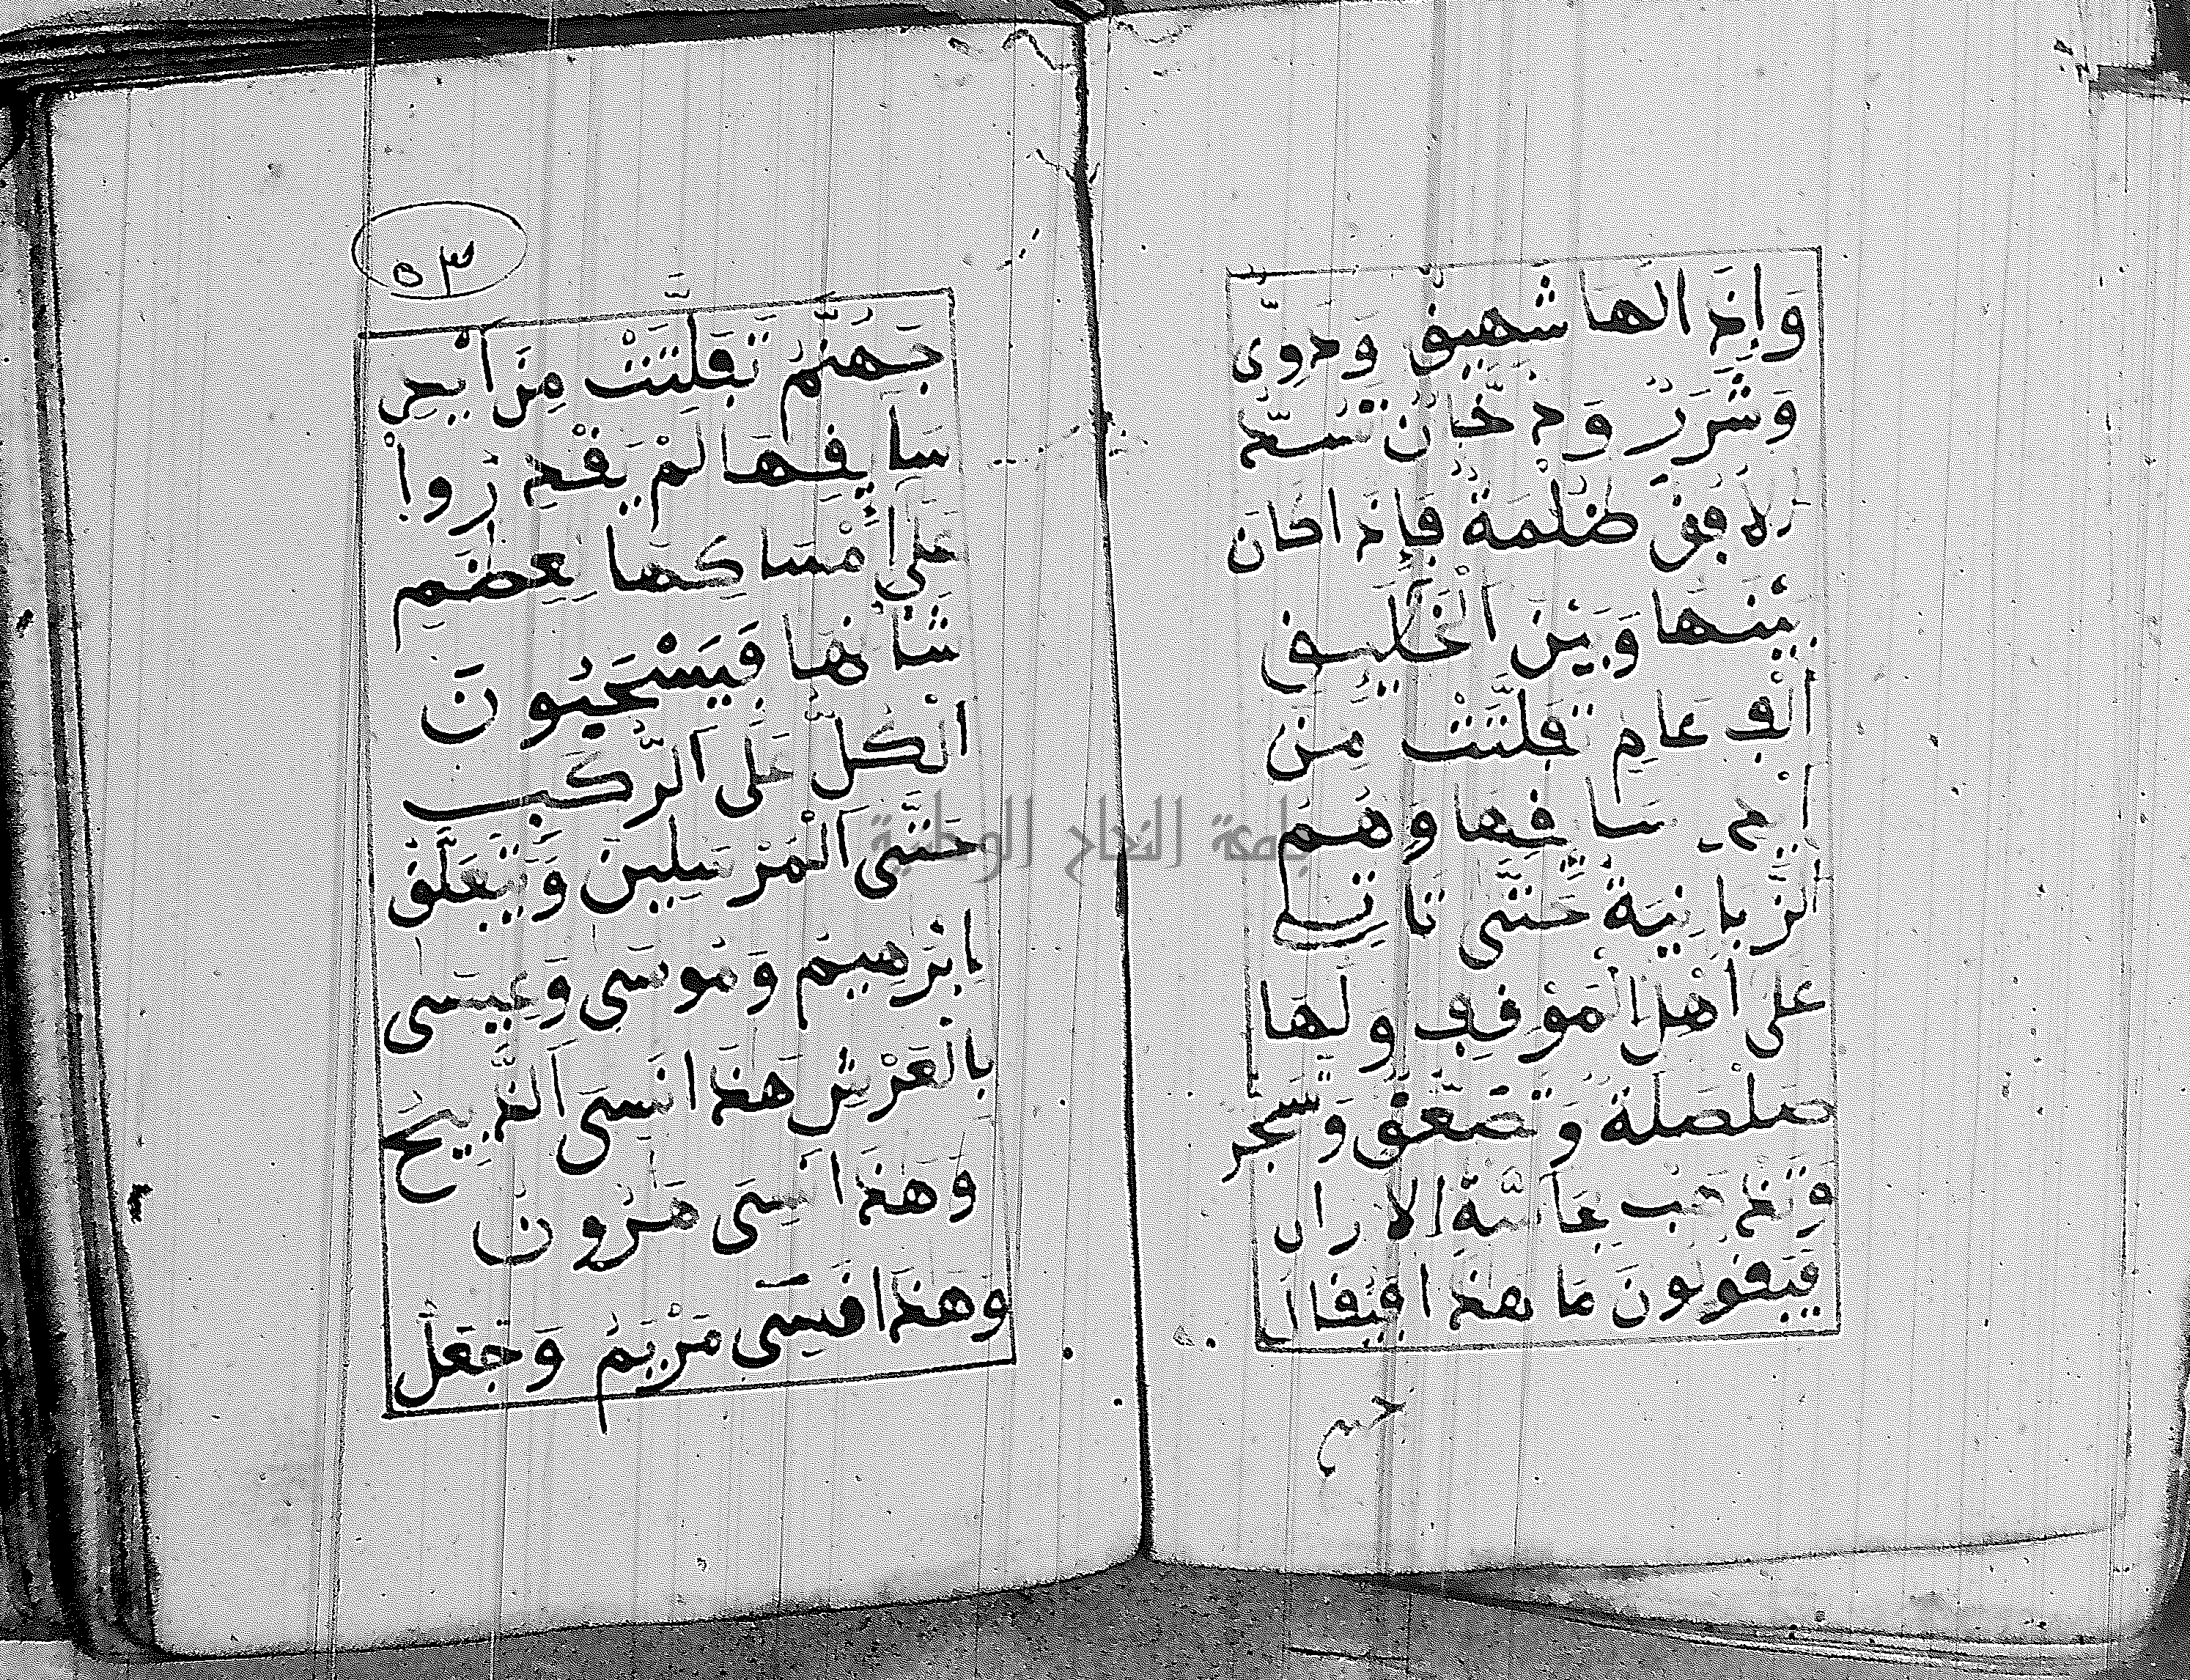 وَإِذَا لَهَا شَهِيقٌ وَدَوِيٌّ
وَشَرَرٌ وَدُخَّانٌ تَسُدُّ
الاُفُقَ ظُلْمَةً فَإِذَا كَانَ
بَيْنَهَا وَبَيْنَ الْخَلَيِقِ
أَلْفَ عَامٍ تَفَلَّتَتْ مِنْ
أَيْدِي سَايِقِهَا وَهُمُ
الزَّبَانِيَةُ حَتَّى تَاتِيَ
عَلَى أَهْلِ الْمَوْقِفِ وَلَهَا
صَلْصَلَةٌ وَتَصَعُّقٌ وَتَسَجُّرٌ
فَيَقُولُونَ مَا هَذَا فَيُقَالُ
٥٣
جَهَنَّمُ تَفَلَّتَتْ مِنْ أَيْدِي
سَايِقِهَا لَمْ يَقْدِرُوا
عَلَى إِمْسَاكِهَا لِعِظَمِ
شَأْنِهَا فَيَسْتَجِيُونَ
الْكُلُّ عَلَى الرُّكَبِ
حَتَّى الْمُرْسَلِينَ وَيَتَعَلَّقُ
إِبْرَهِيمُ وَمُوسَى وَعِيسَى
بِالْعَرْشِ هَذَا نَسِيَ الذَّبِيحَ
وَهَذَا نَسِيَ هَرُونَ
وَهَذَا نَسِيَ مَرْيَمَ وَجَعَلَ
جامعة النجاح الوطنية